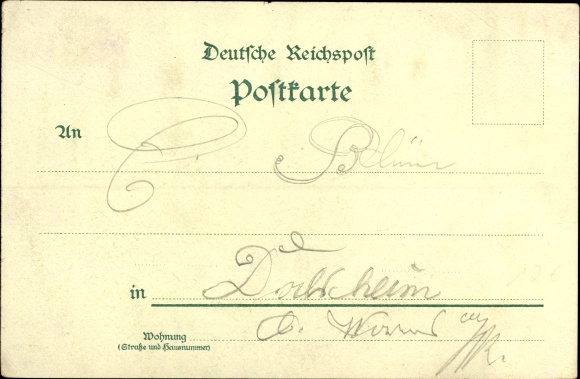 Deutsche Reichspost
Postkarte
An C. Blüm
in Dalsheim
b. Worms a/R.
Wohnung
(Straße und Hausnummer)